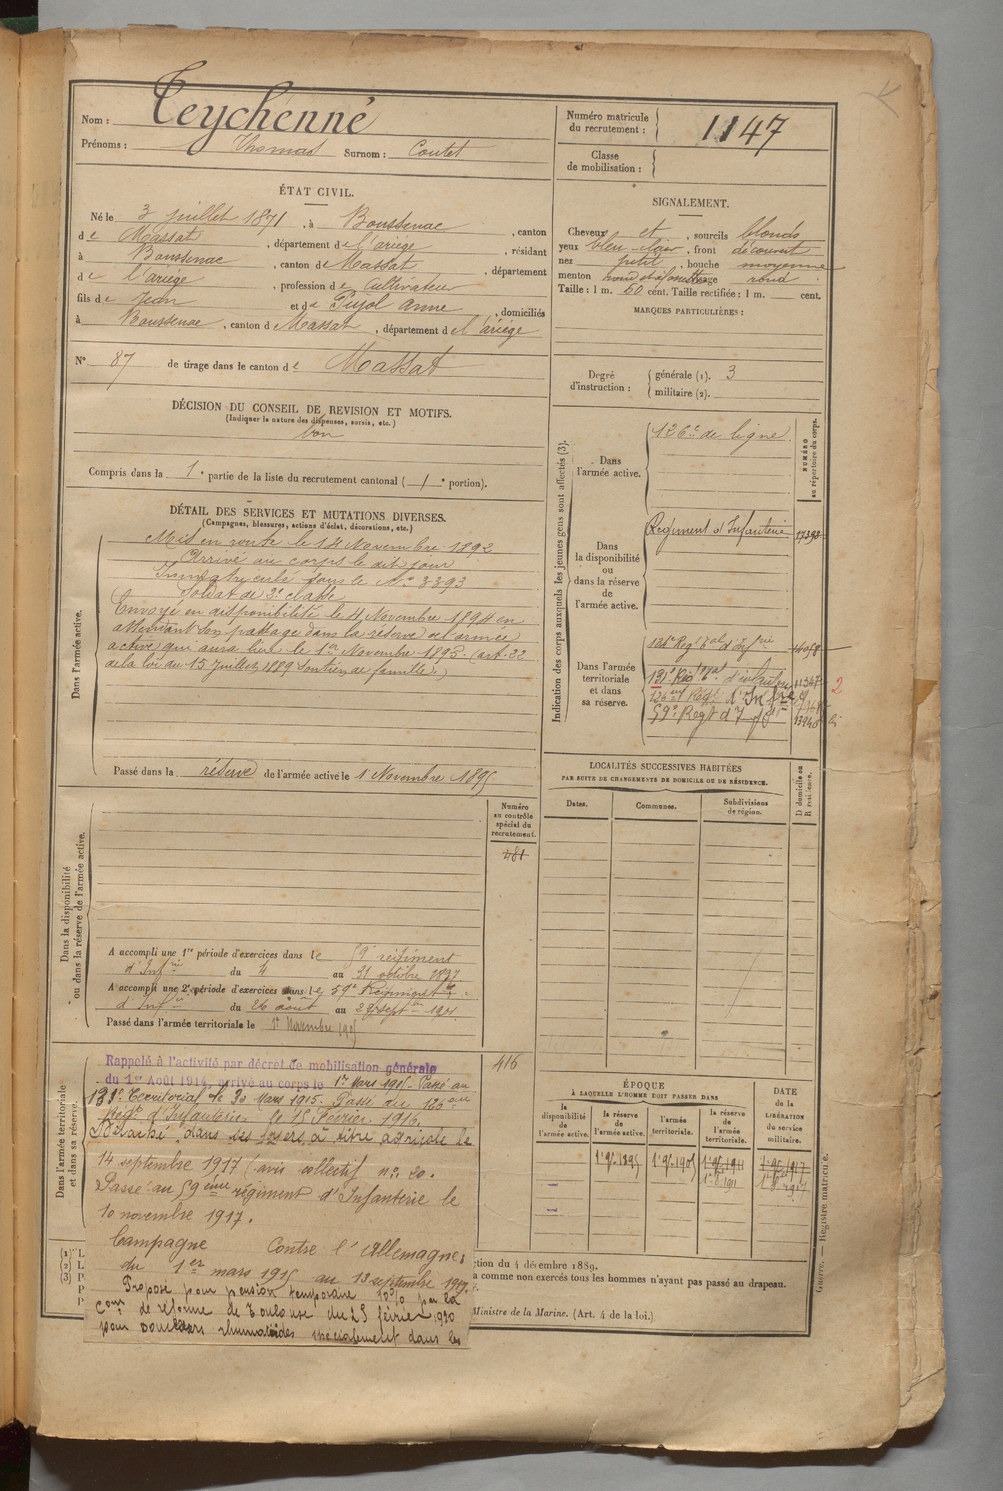 Nom : Teychenné
Prénoms : Thomas Surnom : Coutet
Numéro matricule du recrutement : 1147
Classe de mobilisation :
ÉTAT CIVIL.
Né le 3 juillet 1871, à Boussenac, canton
de Massat, département de l'ariège, résidant
à Boussenac, canton de Massat, département
de l'ariège, profession de Cultivateur
fils de Jean et de Pujol Anne, domiciliés
à Boussenac, canton de Massat, département de l'ariège
N° 87 de tirage dans le canton de Massat
SIGNALEMENT.
Cheveux et, sourcils blonds
yeux bleu-clair, front découvert
nez petit, bouche moyenne
menton rond et à fossette visage rond
Taille : 1 m. 60 cent. Taille rectifiée : 1 m. cent.
MARQUES PARTICULIÈRES :
Degré d'instruction : générale (1). 3
militaire (2).
DÉCISION DU CONSEIL DE REVISION ET MOTIFS.
(Indiquer la nature des dispenses, sursis, etc.)
bon
Compris dans la 1e partie de la liste du recrutement cantonal (1e portion).
DÉTAIL DES SERVICES ET MUTATIONS DIVERSES.
(Campagnes, blessures, actions d'éclat, décorations, etc.)
Dans l'armée active.
Mis en route le 14 Novembre 1892
Arrivé au corps le dit jour
Immatriculé sous le N° 3393
Soldat de 2e classe
Envoyé en disponibilité le 4 Novembre 1894 en
attendant son passage dans la réserve de l'armée
active qui aura lieu le 1er Novembre 1895. (art. 22
de la loi du 15 juillet 1889 Soutien de famille)
Passé dans la réserve de l'armée active le 1 Novembre 1895
Indication des corps auxquels les jeunes gens sont affectés (3).
NUMÉRO au répertoire du corps.
Dans l'armée active.
126e de ligne
Dans la disponibilité ou dans la réserve de l'armée active.
Régiment d'Infanterie 17398
Dans l'armée territoriale et dans sa réserve.
131e Rég t al d'infanterie 11347 2
126eme Régt d'Infie
59e Regt d'Infie
Dans la disponibilité ou dans la réserve de l'armée active.
Numéro au contrôle spécial du recrutement.
481
A accompli une 1re période d'exercices dans le 59e régiment
d'Infie du 4 au 31 octobre 1897
A accompli une 2e période d'exercices dans le 59e Régiment
d'Infie du 26 août au 22 septbre 1901
Passé dans l'armée territoriale le 1er Novembre 1905
LOCALITÉS SUCCESSIVES HABITÉES
PAR SUITE DE CHANGEMENTS DE DOMICILE OU DE RÉSIDENCE.
Dates. Communes. Subdivisions de région. D domicile ou R résidence.
Dans l'armée territoriale et dans sa réserve.
416
Rappelé à l'activité par décret de mobilisation générale
du 1er Août 1914, arrivé au corps le 1er Mars 1915 - Passé au
131e Territorial le 20 Mars 1915. Passé au 126eme
Régt d'Infanterie le 15 Février 1916.
Détaché dans ses foyers à titre agricole le
14 septembre 1917 (avis collectif n° 20.
Passé au 59ème régiment d'Infanterie le
10 novembre 1917.
Campagne Contre l'Allemagne :
du 1er mars 1915 au 13 septembre 1917.
Proposé pour pension temporaire 10% par la
Com on de réforme de Toulouse du 25 février 1920
pour douleurs rhumatoïdes spécialement dans les
ÉPOQUE
À LAQUELLE L'HOMME DOIT PASSER DANS
la disponibilité de l'armée active.
la réserve de l'armée active.
l'armée territoriale.
la réserve de l'armée territoriale.
DATE de la LIBÉRATION du service militaire.
1 9bre 1895 1 9bre 1905 1 9bre 1911 1 9bre 1917
1 8bre 1911 1 8bre 1917
(1) L
(2) L
(3) P
P
P
ction du 4 décembre 1889.
a comme non exercés tous les hommes n'ayant pas passé au drapeau.
Ministre de la Marine. (Art. 4 de la loi.)
Guerre. — Registre matricule.